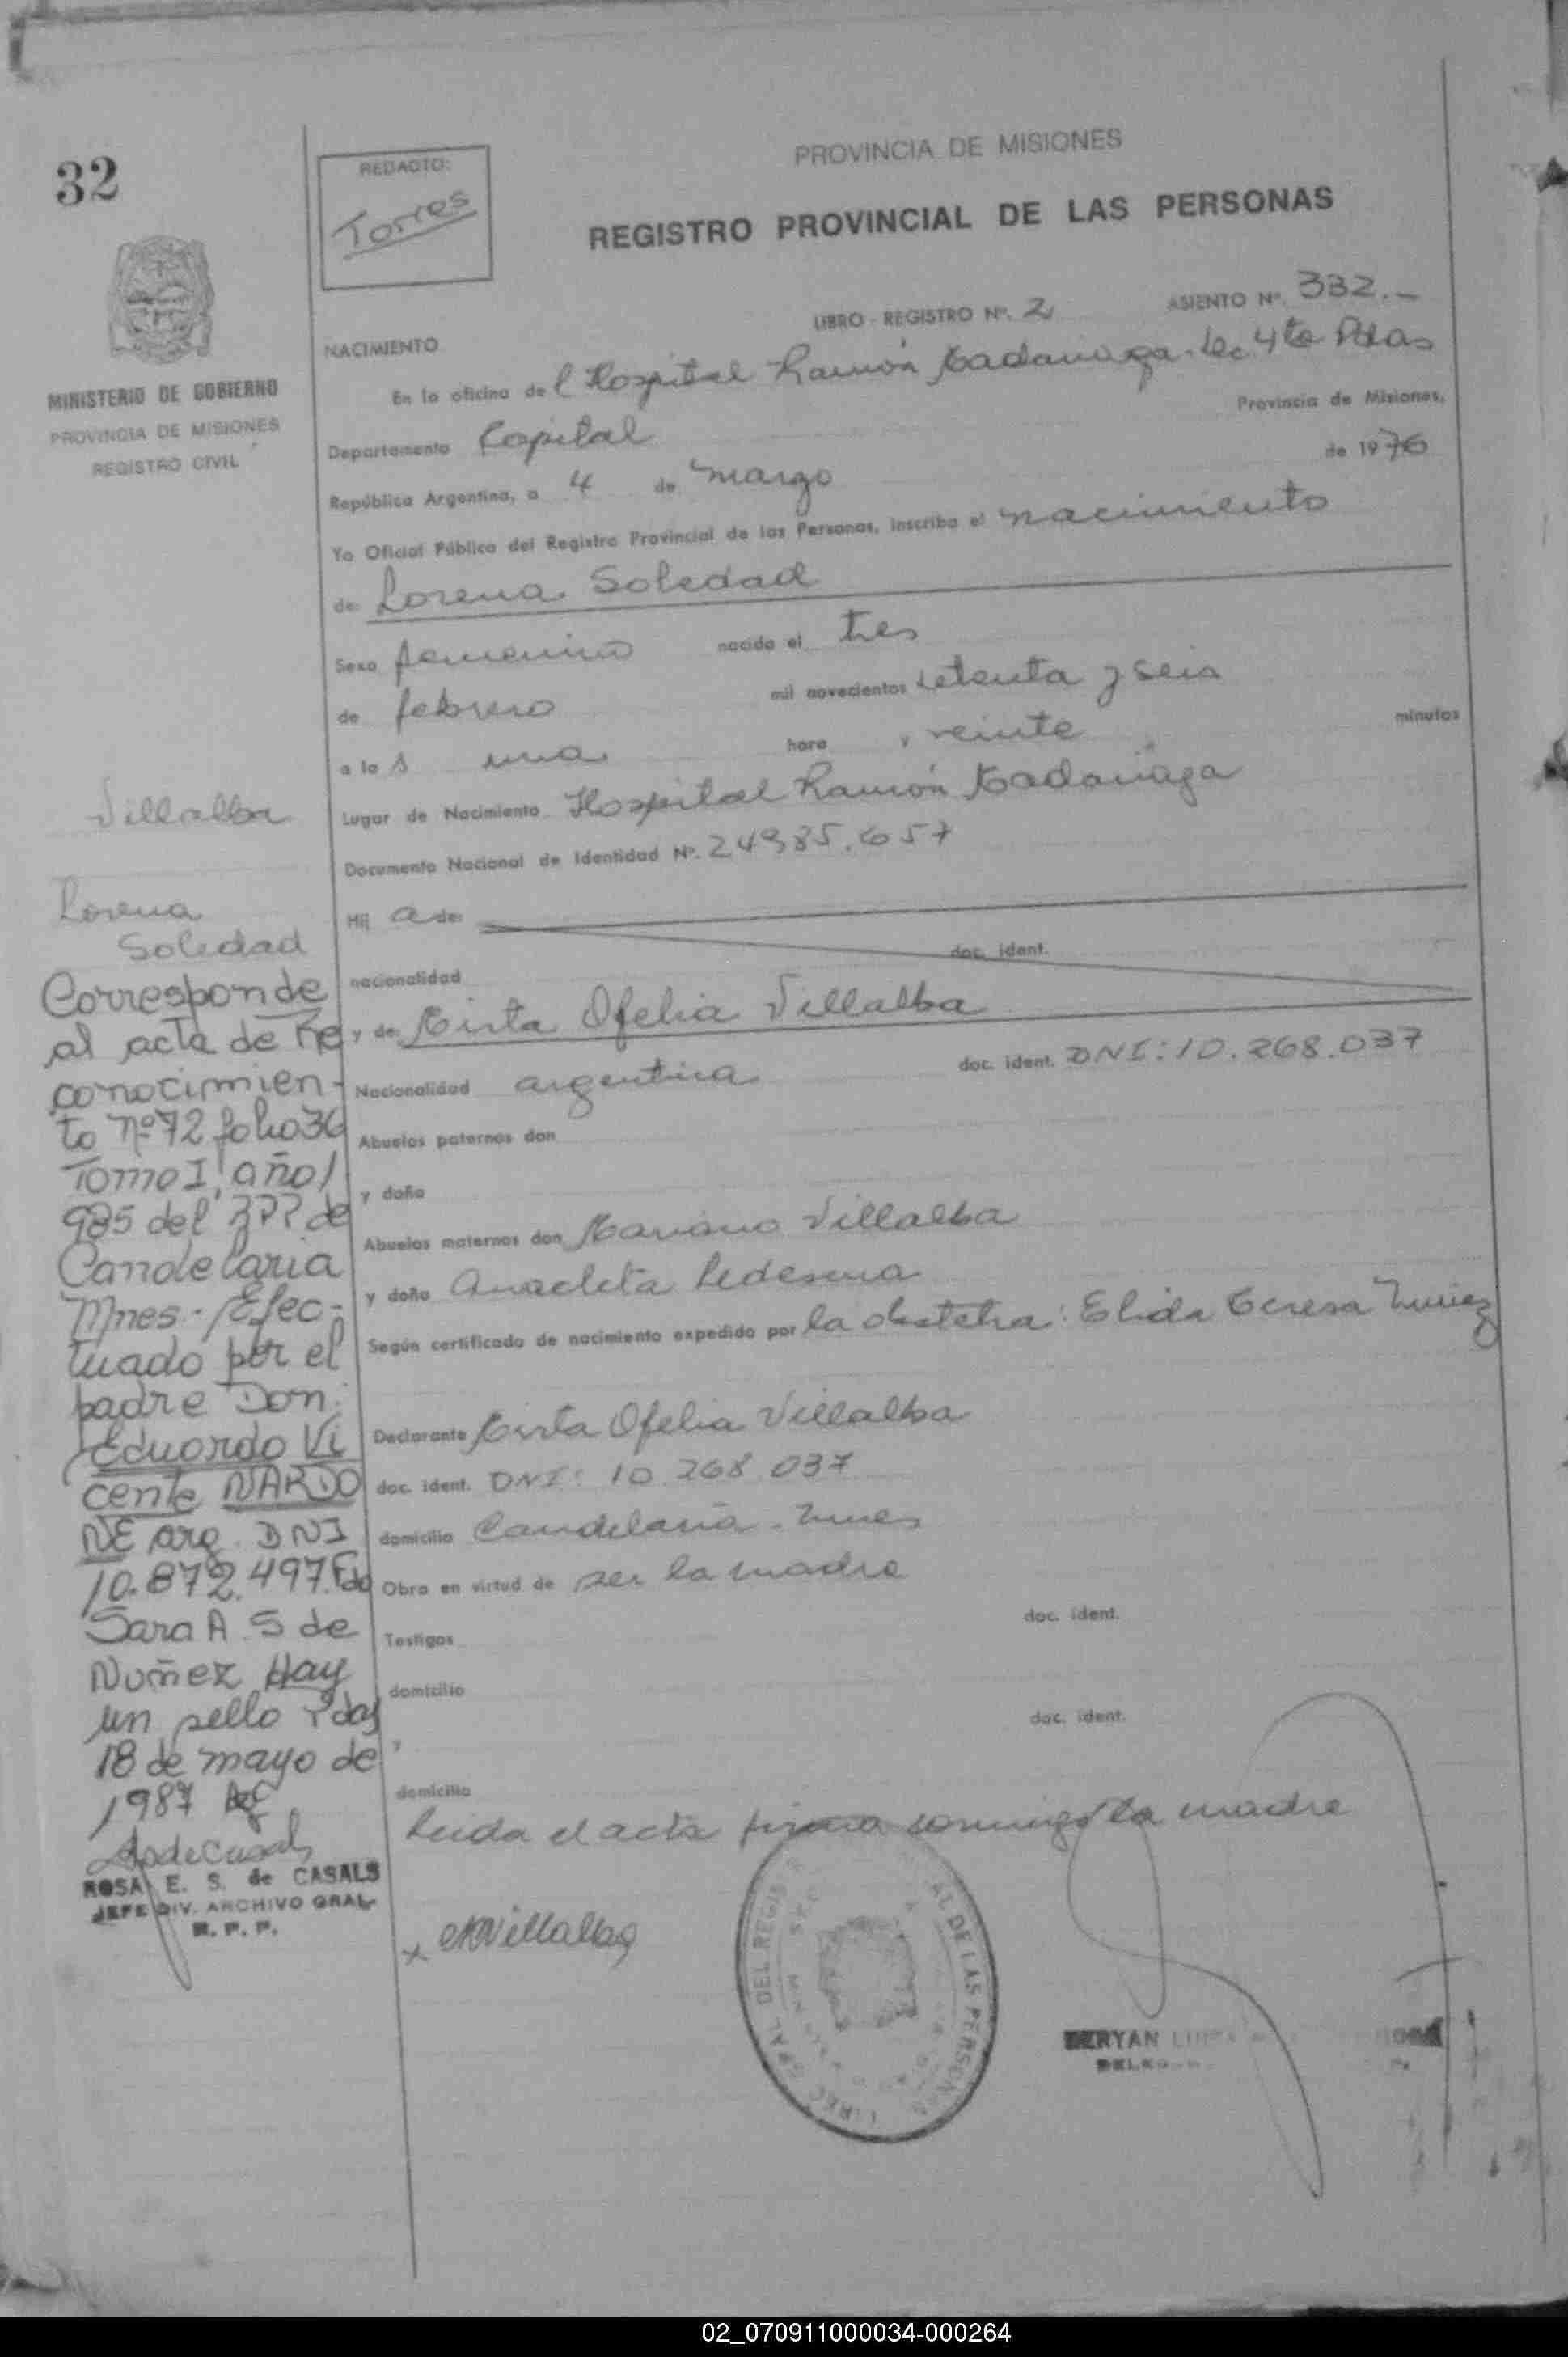 32
REDACTO:
Torres
PROVINCIA DE MISIONES
REGISTRO PROVINCIAL DE LAS PERSONAS
LIBRO - REGISTRO Nº. 2
ASIENTO Nº. 332.-
NACIMIENTO
En la oficina del Hospital Ramón Madariaga. 4ta Pdas
MINISTERIO DE GOBIERNO
PROVINCIA DE MISIONES
REGISTRO CIVIL
Provincia de Misiones,
Departamento Capital
República Argentina, a 4 de marzo de 1976
Yo Oficial Público del Registro Provincial de las Personas, inscribo el nacimiento
de Lorena Soledad
Sexo femenino nacido el tres
de febrero mil novecientos setenta y seis
a las una hora y veinte minutos
Lugar de Nacimiento Hospital Ramón Madariaga
Documento Nacional de Identidad Nº. 24985.657
Hij a de:
doc. ident.
nacionalidad
y de: Mirta Ofelia Villalba
Nacionalidad argentina doc. ident. DNI: 10.268.037
Abuelos paternos don
y doña
Abuelos maternos don Mariano Villalba
y doña Anacleta Ledesma
Según certificado de nacimiento expedido por la obstetra: Elida Teresa Nuñez
Declarante Mirta Ofelia Villalba
doc. ident. DNI: 10.268.037
domicilio Candelaria. Mnes
Obra en virtud de ser la madre
Testigos doc. ident.
domicilio
y doc. ident.
domicilio
Leida el acta firma conmigo la madre
Villalba
Lorena
Soledad
Corresponde
al acta de Re
conocimien-
to nº 72 folio 36
Tomo I año 1
985 del RPP de
Candelaria
Mnes.- Efec-
tuado por el
padre Don:
Eduardo Vi
cente NARDO
NE arg. DNI
10.872.497. Fdo
Sara A. S de
Nuñez Hay
un sello Pdas
18 de mayo de
1987
ROSA E. S. de CASALS
JEFE DIV. ARCHIVO GRAL
R. P. P.
x Villalba
DEL REGIS AL DE LAS PERSONAS
02_070911000034-000264